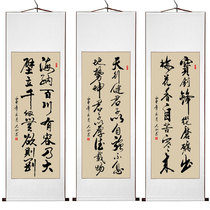 寶劍鋒從磨礪出
梅花香自苦寒来
天行健君子以自强不息
地势坤君子以厚德載物
海納百川有容乃大
壁立千仞無欲則剛